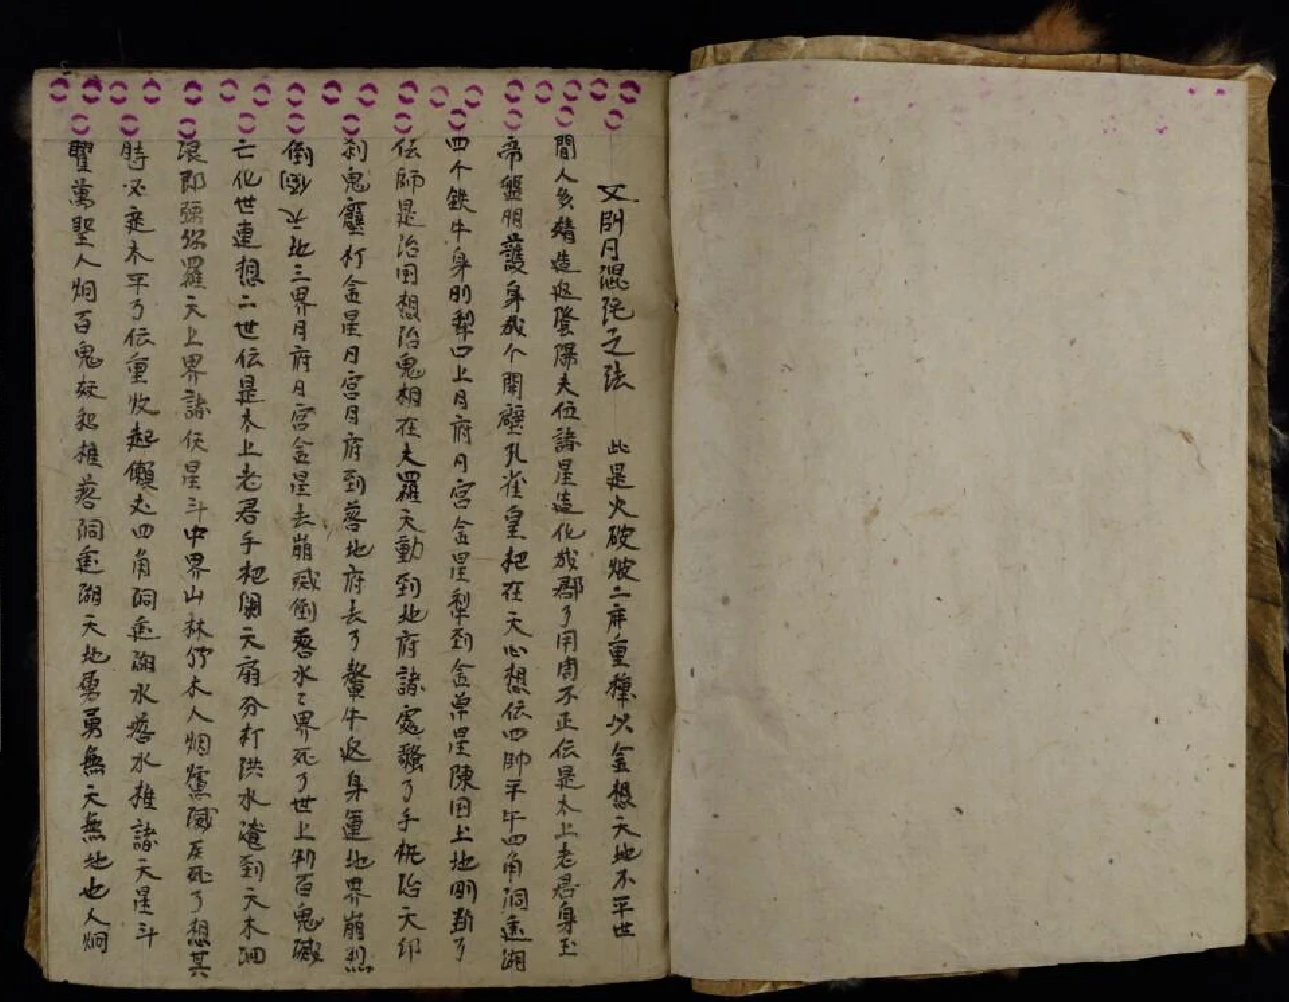 又明月混沌之法 此是火破被二府重種以金想天地不平世
間人多精造返陰陽夫位諸星造化成郡了用周不正伝是木上老君身玉
帝盤明護身成个開壁孔雀皇把在天心想伝四帥平午四角洞庭湖
四个鉄牛身明犁口上月府月宮金星犁到金草星陳田上地明断了
伝師是治田想治鬼相在大羅天動到地府諸處發了手机治天印
刹鬼靈打金星月宮月府到落地府去了鰲牛返身運地界崩烈
倒 地三界月府月宮金星去崩滅倒落水 界死了世上刹百鬼滅
亡化世連想二世伝是木上老君手把開天扇分打洪水淹到天木洞
浪即強弥羅天上界諸伝星斗中界山林竹木人烟 滅 死了想其
時又 木平了伝重收起懶 四角洞庭湖水落水推諸天星斗
聖萬聖人烟百鬼妖和推落洞庭湖天地勇勇無天無地也人烟